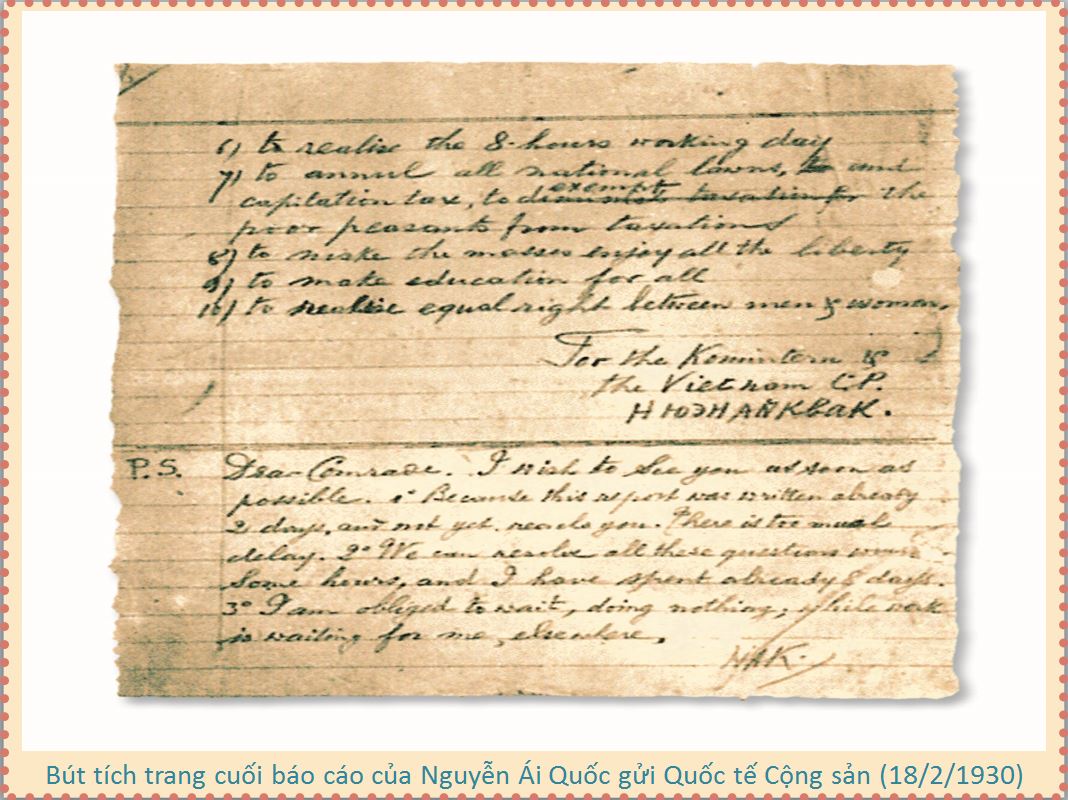 6) to realise the 8-hours working day
7) to annul all national lawns, to and
capitation tax, to exempt taxation for the
poor peasants from taxations
8) to make the masses enjoy all the liberty
9) to make education for all
10) to realise equal right between men & women.
For the Komintern &
the Vietnam C.P.
P.S. Dear Comrade. I wish to see you as soon as
possible. 1° Because this report was written already
2 days, and not yet reach you. There is too much
delay. 2° We can resolve all these questions
some hours, and I have spent already 8 days.
3° I am obliged to wait, doing nothing, while work
is waiting for me, elsewhere.
NAK.
Bút tích trang cuối báo cáo của Nguyễn Ái Quốc gửi Quốc tế Cộng sản (18/2/1930)